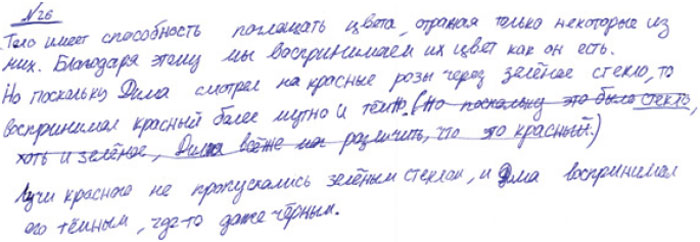 №26
Тело имеет способность поглощать цвета, отражая только некоторые из
них. Благодаря этому мы воспринимаем их цвет как он есть.
Но поскольку Дима смотрел на красные розы через зелёное стекло, то
воспринимал красный более мутно и тёмно. (Но поскольку это было стекло,
хоть и зелёное, Дима всё же мог различить, что это красный.)
Лучи красного не пропускались зелёным стеклом, и Дима воспринимал
его тёмным, где-то даже чёрным.